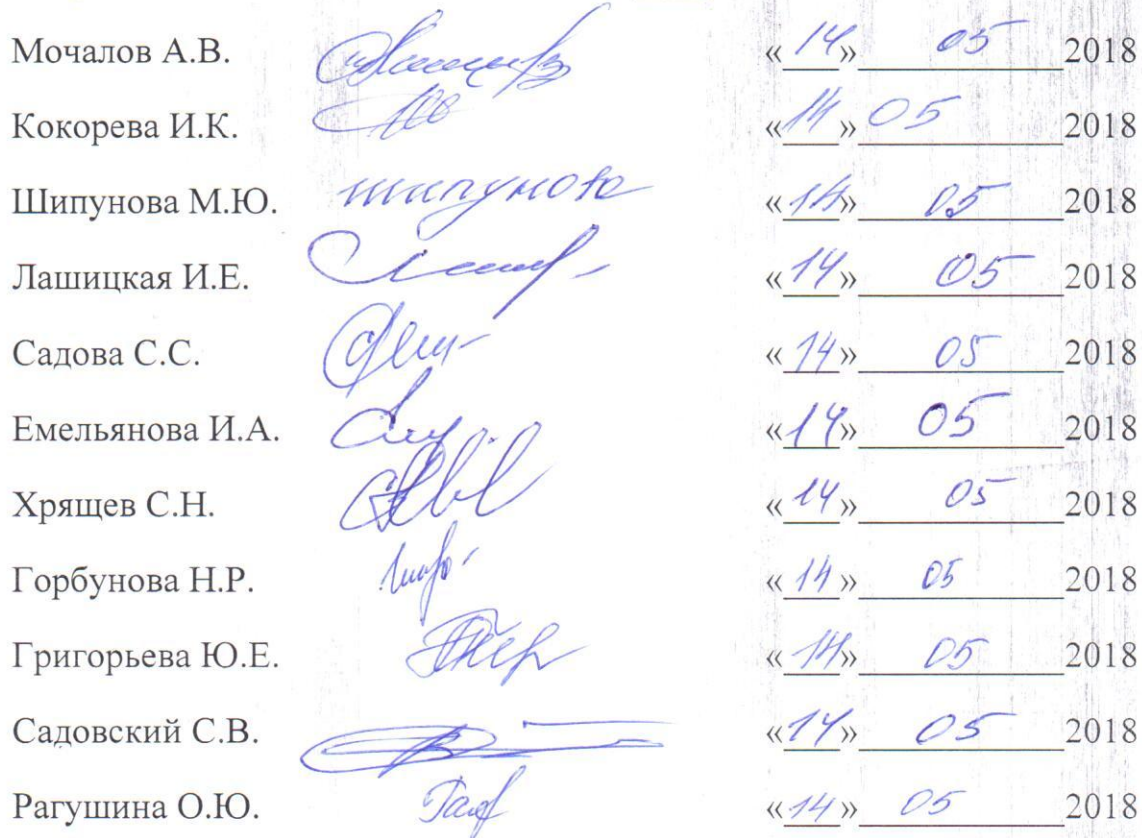 Мочалов А.В. «14» 05 2018
Кокорева И.К. «14» 05 2018
Шипунова М.Ю. шипунова «14» 05 2018
Лашицкая И.Е. «14» 05 2018
Садова С.С. «14» 05 2018
Емельянова И.А. «14» 05 2018
Хрящев С.Н. «14» 05 2018
Горбунова Н.Р. «14» 05 2018
Григорьева Ю.Е. «14» 05 2018
Садовский С.В. «14» 05 2018
Рагушина О.Ю. «14» 05 2018